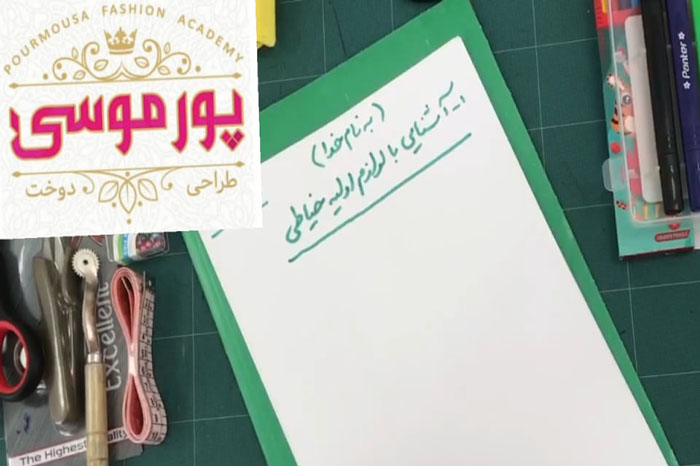 POURMOUSA FASHION ACADEMY
پورموسی
طراحی دوخت
(به نام خدا)
۱- آشنایی با لوازم اولیه خیاطی
Panter
Excellent
The Highest Quality